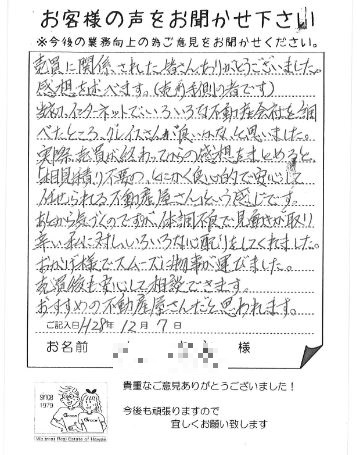 お客様の声をお聞かせ下さい
※今後の業務向上の為ご意見をお聞かせください。
売買に関係された皆さんありがとうございました。
感想を述べます。(売却側の者です)
最初、インターネットでいろいろな不動産会社を調
べたところ、グレイスさんが良いかな、と思いました。
実際売買が終わってからの感想をまとめると、
「相見積り不要の、とにかく良心的で安心して
任せられる不動産屋さん」という感じです。
あとから気づくのですが、体調不良で身動きが取り
辛い私に対し、いろいろな心配りをしてくれました。
おかげ様でスムーズに物事が運びました。
売買後も安心して相談できます。
おすすめの不動産屋さんだと思われます。
ご記入日 H28年 12月 7日
お名前 様
貴重なご意見ありがとうございました!
今後も頑張りますので
宜しくお願い致します